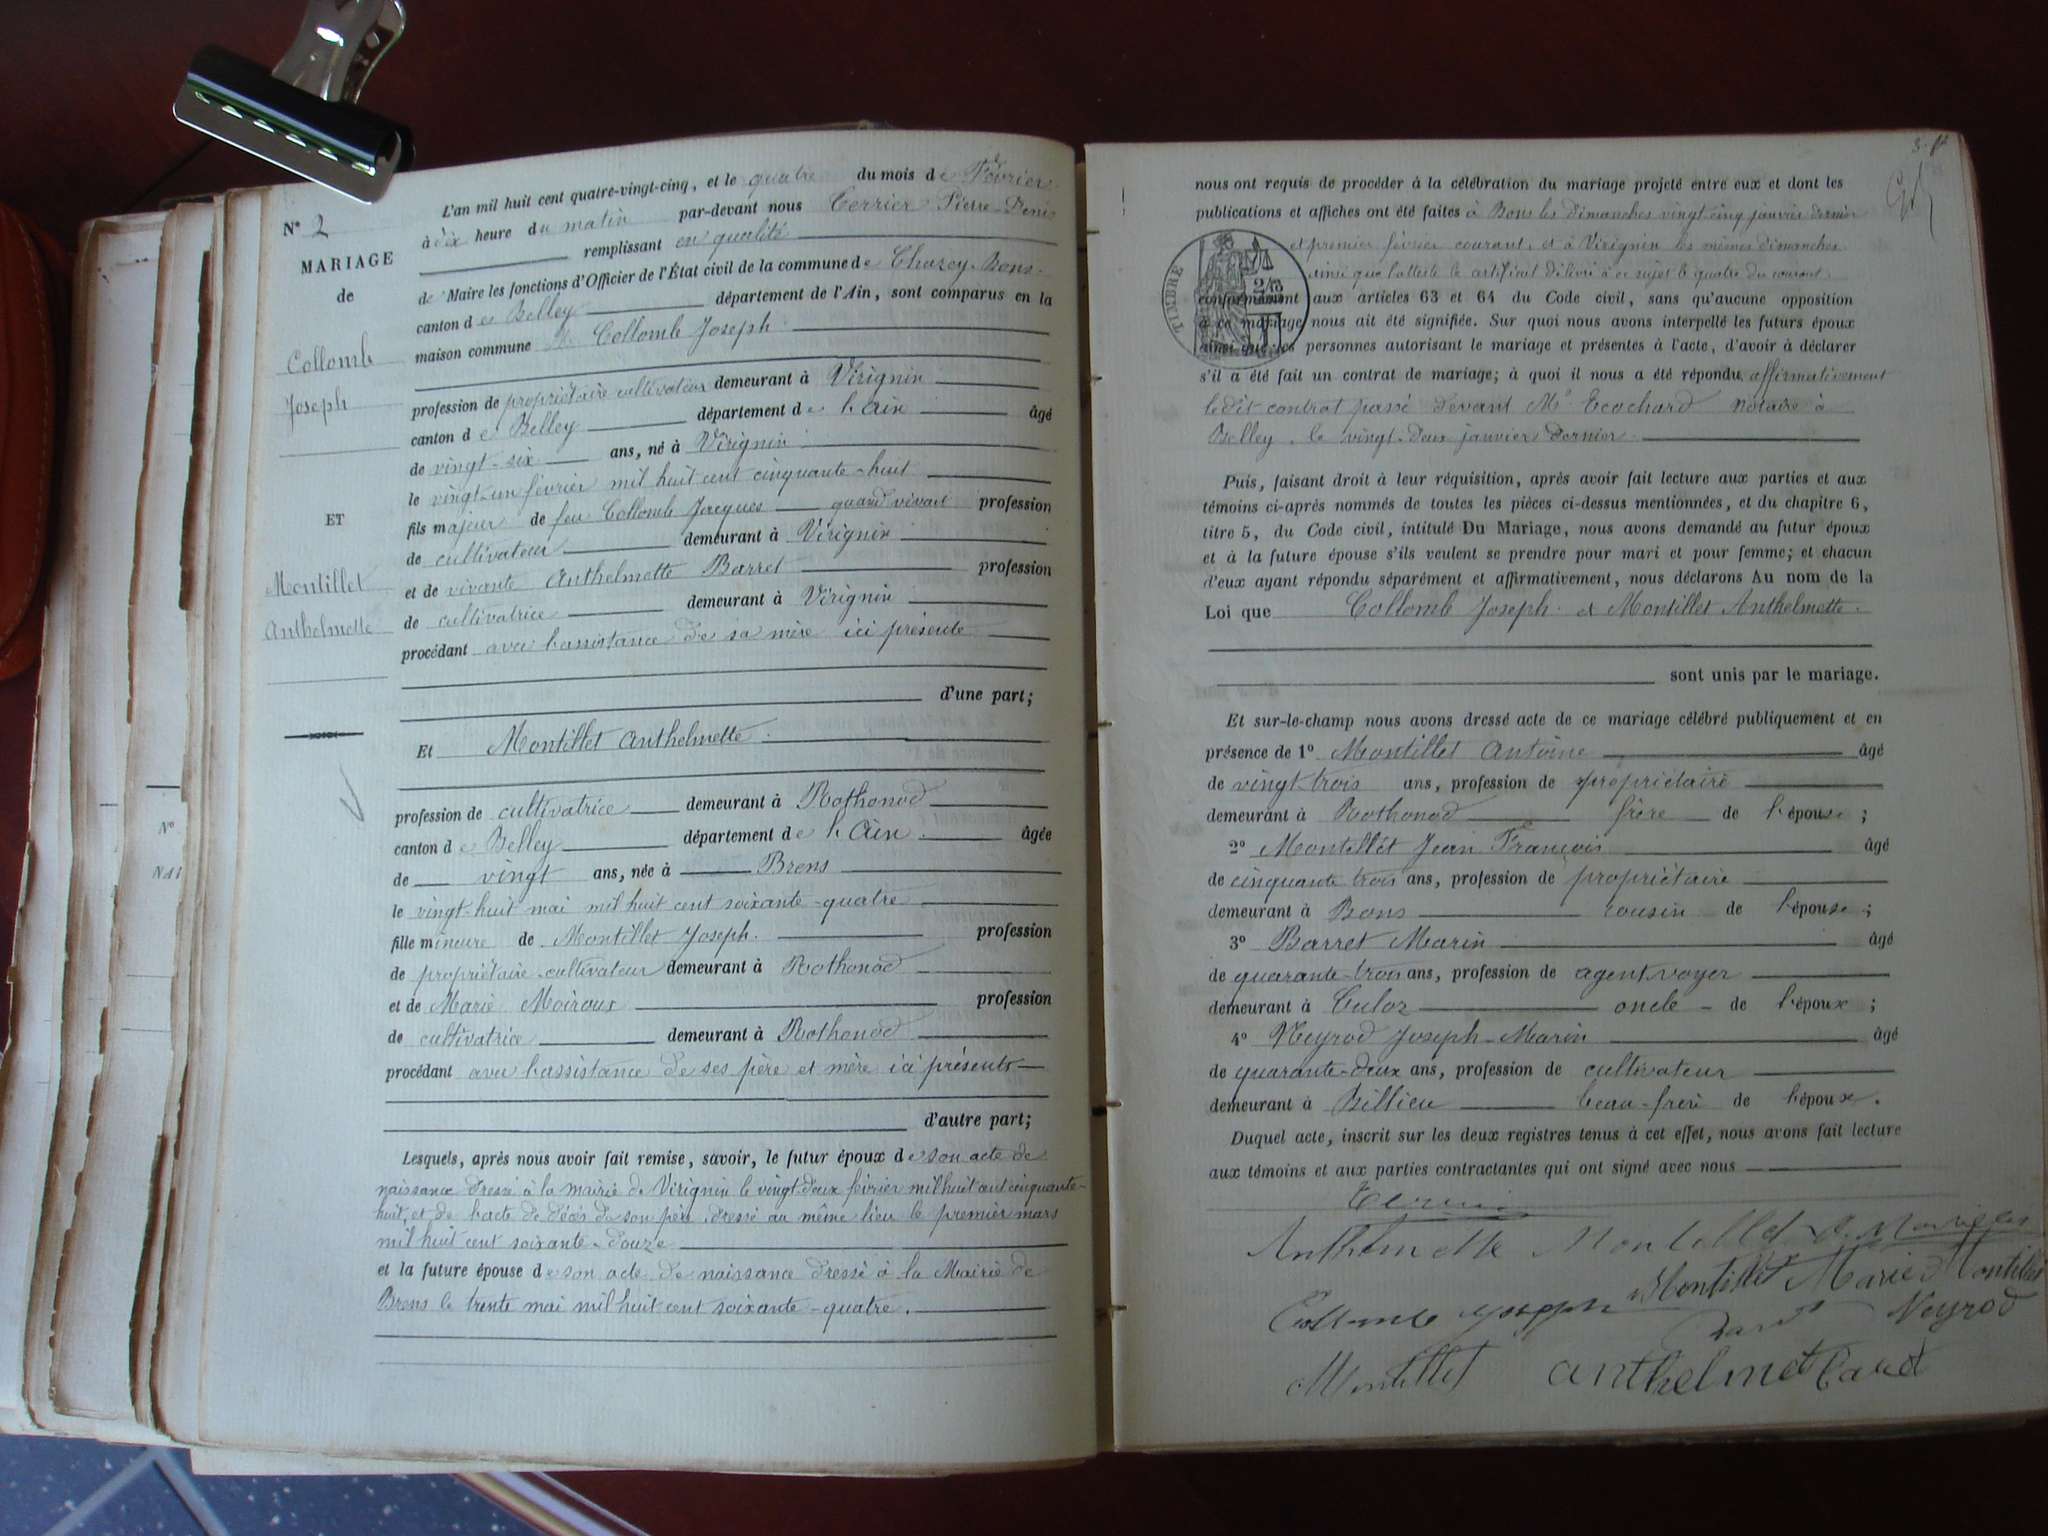 N° 2
MARIAGE
de
Collomb
Joseph
ET
Montillet
Anthelmette
L'an mil huit cent quatre-vingt-cinq, et le quatre du mois de Février
à dix heure du matin par-devant nous Terrier Pierre-Denis
remplissant en qualité
de Maire les fonctions d'Officier de l'État civil de la commune de Chazey-Bons
canton de Belley département de l'Ain, sont comparus en la
maison commune Collomb Joseph
profession de propriétaire cultivateur demeurant à Virignin
canton de Belley département de l'Ain âgé
de vingt-six ans, né à Virignin
le vingt-un février mil huit cent cinquante-huit
fils majeur de feu Collomb Jacques quand vivait profession
de cultivateur demeurant à Virignin
et de vivante Anthelmette Barret profession
de cultivatrice demeurant à Virignin
procédant avec l'assistance de sa mère ici présente
d'une part;
Et Montillet Anthelmette
profession de cultivatrice demeurant à Rothonod
canton de Belley département de l'Ain âgée
de vingt ans, née à Brens
le vingt-huit mai mil huit cent soixante-quatre
fille mineure de Montillet Joseph profession
de propriétaire-cultivateur demeurant à Rothonod
et de Marie Moiroux profession
de cultivatrice demeurant à Rothonod
procédant avec l'assistance de ses père et mère ici présents
d'autre part;
Lesquels, après nous avoir fait remise, savoir, le futur époux de son acte de
naissance dressé à la mairie de Virignin le vingt-deux février mil huit cent cinquante-
huit, et de l'acte de décès de son père dressé au même lieu le premier mars
mil huit cent soixante-douze
et la future épouse de son acte de naissance dressé à la Mairie de
Brens le trente mai mil huit cent soixante-quatre.
nous ont requis de procéder à la célébration du mariage projeté entre eux et dont les
publications et affiches ont été faites à Bons les dimanches vingt cinq janvier dernier
et premier février courant, et à Virignin les mêmes dimanches
ainsi que l'atteste le certificat délivré à ce sujet le quatre du courant
TIMBRE
conformément aux articles 63 et 64 du Code civil, sans qu'aucune opposition
à ce mariage nous ait été signifiée. Sur quoi nous avons interpellé les futurs époux
ainsi que les personnes autorisant le mariage et présentes à l'acte, d'avoir à déclarer
s'il a été fait un contrat de mariage; à quoi il nous a été répondu affirmativement
ledit contrat passé devant Me Tcochard notaire à
Belley, le vingt-deux janvier dernier
Puis, faisant droit à leur réquisition, après avoir fait lecture aux parties et aux
témoins ci-après nommés de toutes les pièces ci-dessus mentionnées, et du chapitre 6,
titre 5, du Code civil, intitulé Du Mariage, nous avons demandé au futur époux
et à la future épouse s'ils veulent se prendre pour mari et pour femme; et chacun
d'eux ayant répondu séparément et affirmativement, nous déclarons Au nom de la
Loi que Collomb Joseph et Montillet Anthelmette
sont unis par le mariage.
Et sur-le-champ nous avons dressé acte de ce mariage célébré publiquement et en
présence de 1° Montillet Antoine âgé
de vingt trois ans, profession de propriétaire
demeurant à Rothonod frère de l'épouse;
2° Montillet Jean François âgé
de cinquante trois ans, profession de propriétaire
demeurant à Bons cousin de l'épouse;
3° Barret Marin âgé
de quarante-trois ans, profession de agent voyer
demeurant à Culoz oncle de l'époux;
4° Neyrod Joseph-Marin âgé
de quarante-deux ans, profession de cultivateur
demeurant à Billieu beau-frère de l'époux.
Duquel acte, inscrit sur les deux registres tenus à cet effet, nous avons fait lecture
aux témoins et aux parties contractantes qui ont signé avec nous
Anthelmette Montillet
Montillet Marie Montillet
Collomb Joseph Neyrod
Montillet